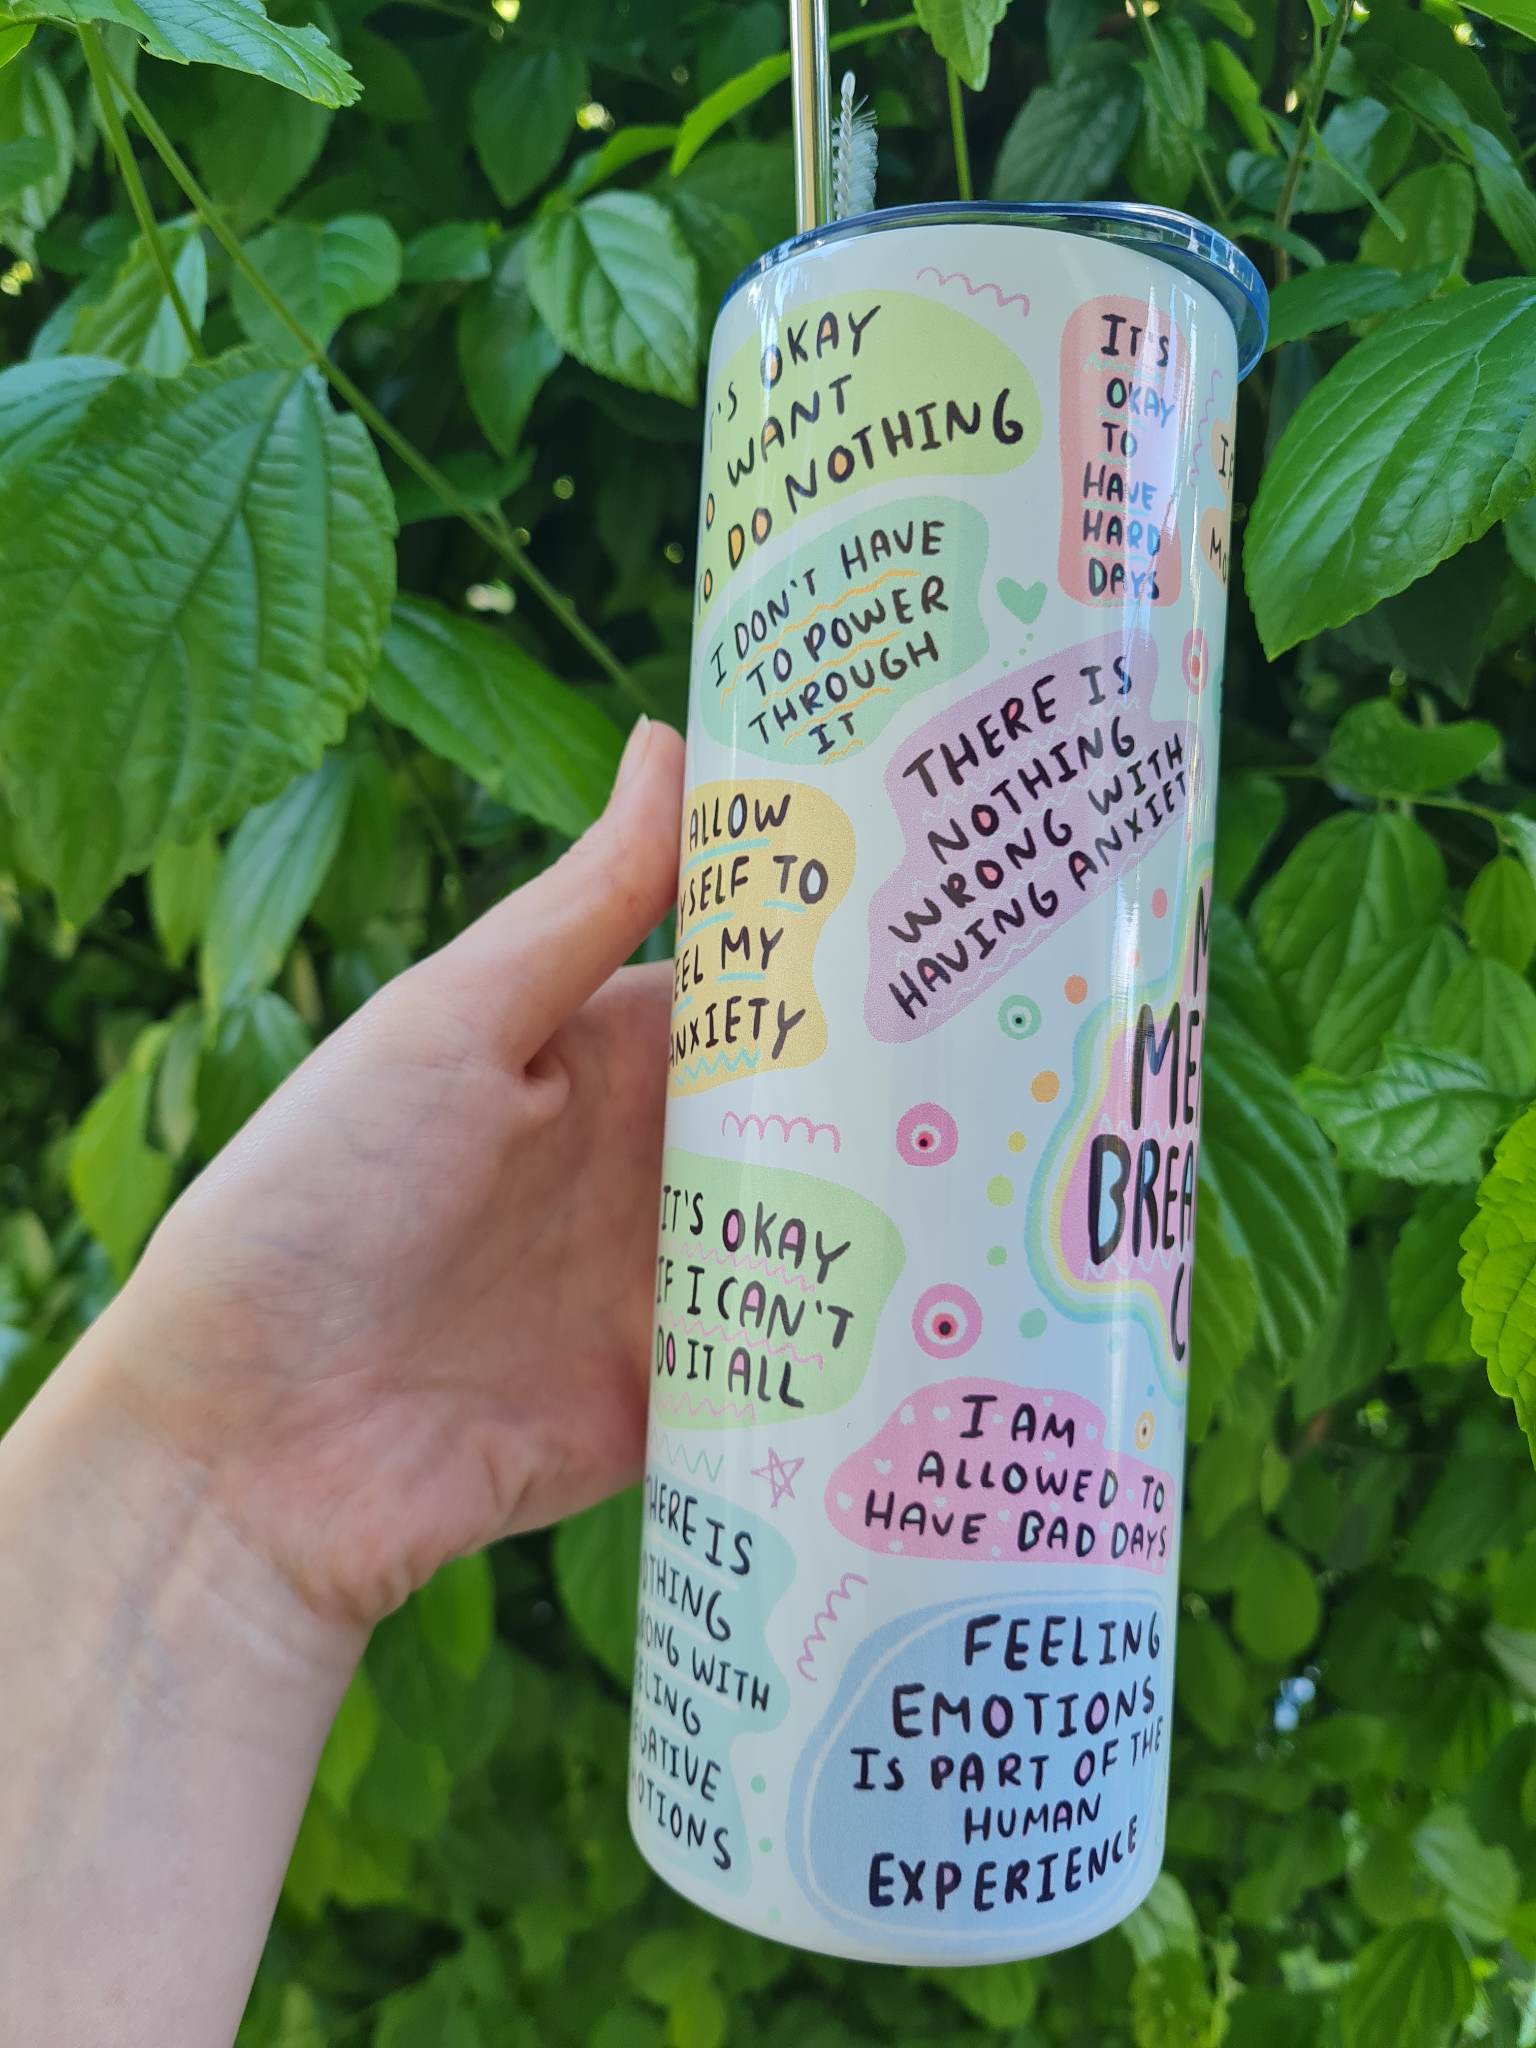 'S OKAY
O WANT
TO DO NOTHING
IT'S
OKAY
TO
HAVE
HARD
DAYS
I DON'T HAVE
TO POWER
THROUGH
IT
THERE IS
NOTHING
WRONG WITH
HAVING ANXIET
ALLOW
YSELF TO
EEL MY
ANXIETY
ME
BREA
C
IT'S OKAY
IF I CAN'T
DO IT ALL
I AM
ALLOWED TO
HAVE BAD DAYS
THERE IS
OTHING
RONG WITH
ELING
EGATIVE
MOTIONS
FEELING
EMOTIONS
IS PART OF THE
HUMAN
EXPERIENCE